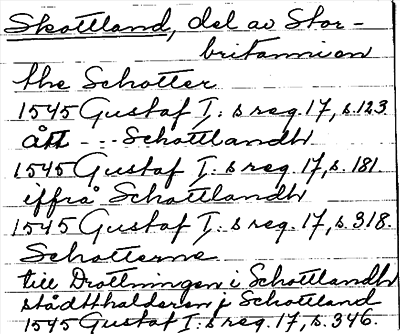 Skottland, del av Stor-
britannien
the Schotter
1545 Gustaf I:s reg. 17, s. 123
ått --- Schottlandh
1545 Gustaf I:s reg. 17, s. 181
iffrå Schottlandh
1545 Gustaf I:s reg. 17, s. 318.
Schotterne
till Drottningen i Schottlandh
stådthalderen j Schottland
1545 Gustaf I:s reg. 17, s. 346.